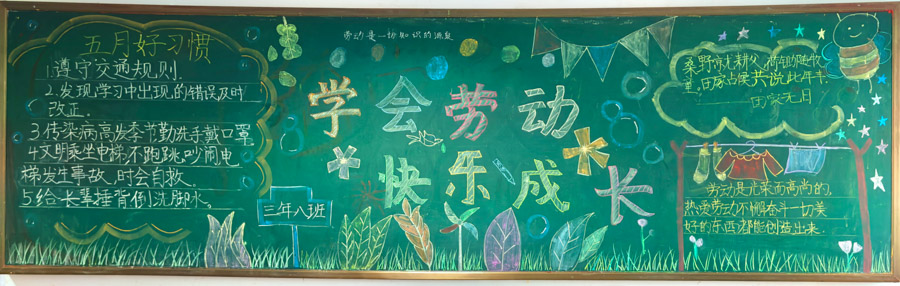 劳动是一切知识的源泉
五月好习惯
1.遵守交通规则.
2.发现学习中出现的错误及时
改正.
3传染病高发季节勤洗手戴口罩
4文明乘坐电梯,不跑跳,吵闹电
梯发生事故,时会自救.
5给长辈捶背倒洗脚水。
学会劳动
快乐成长
三年八班
劳动是光荣而高尚的,
热爱劳动不懈奋斗一切美
好的东西都能创造出来.